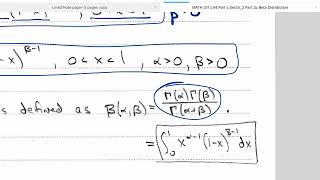 Lined Note paper-3 pages copy
MATH 311 L14 Part c Sect6_2 Part 2c Beta Distribution
-x)^{β-1} , 0 < x < 1, α>0, β>0
s defined as β(α,β) = Γ(α)Γ(β) / Γ(α+β)
= ∫_0^1 x^{α-1} (1-x)^{β-1} dx